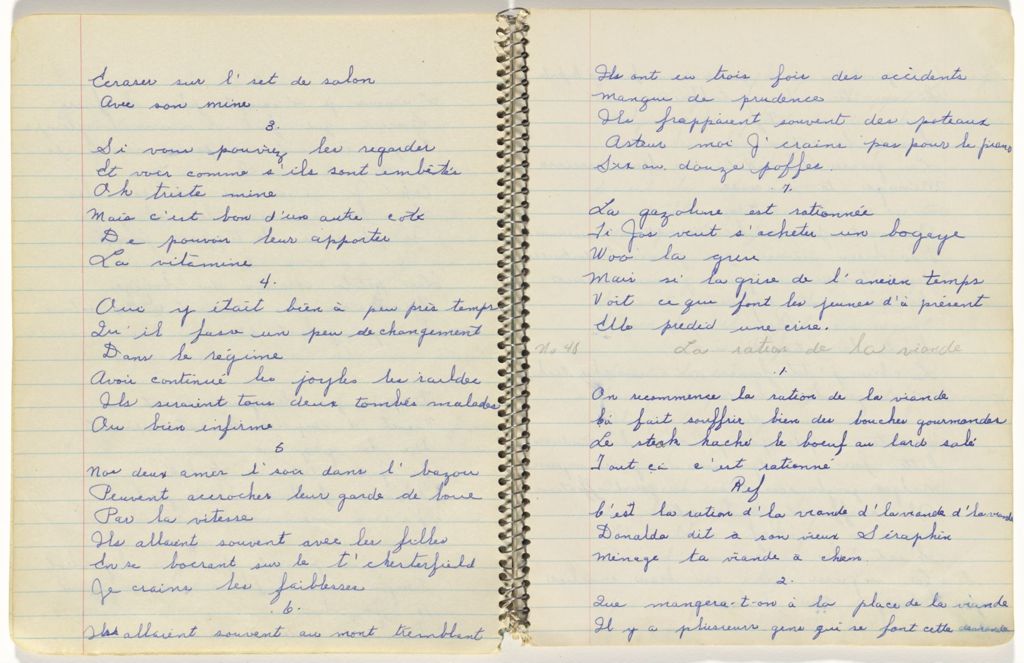 Ecraser sur l'set de salon
Avec son mine
3.
Si vous pouvriez les regarder
Et voir comme s'ils sont embêtés
Oh triste mine
Mais c'est bon d'un autre coté
De pouvoir leur apporter
La vitamine
4.
Oui y était bien à peu près temps
Qu'il fasse un peu de changement
Dans le régime
Avoir continué les
Ils seraient tous deux tombés malades
Ou bien infirme
5
Nos deux amer l'soir dans l'bazou
Peuvent accrocher leur garde de boue
Par la vitesse
Ils allaient souvent avec les filles
En se bocrant sur le t'chesterfield
Je crains les faiblesses
.6.
allaient souvent au mont tremblant
Ils ont eu trois fois des accidents
Manque de prudence
Ils frappaient souvent des poteaux
Asteur moi J'crains pas pour le piano
Six ou douze poffes.
.7.
La gazoline est rationnée
Ti Jos veut s'acheter un bogaye
Woo la grise
Mais si la grise de l'ancien temps
Voit ce que font les jeunes d'à présent
Elle predid une crise.
No 48 La ration de la viande
.1.
On recommence la ration de la viande
Cà fait souffrir bien des bouches gourmandes
Le steak haché le boeuf au lard salé
Tout cà c'est rationné
Ref
C'est la ration d'la viande d'la viande d'la viande
Donalda dit à son vieux Séraphin
Ménage ta viande à chien.
2.
Que mangera-t-on à la place de la viande
Il y a plusieurs gens qui se font cette demande